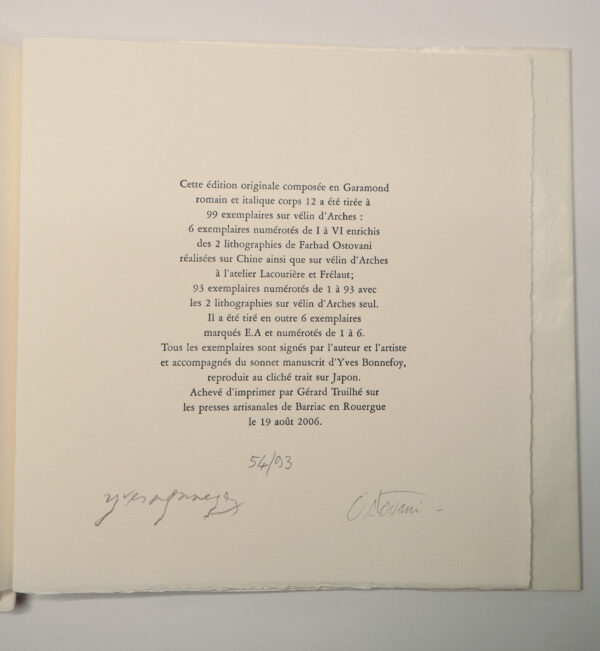 Cette édition originale composée en Garamond
romain et italique corps 12 a été tirée à
99 exemplaires sur vélin d'Arches :
6 exemplaires numérotés de I à VI enrichis
des 2 lithographies de Farhad Ostovani
réalisées sur Chine ainsi que sur vélin d'Arches
à l'atelier Lacourière et Frélaut;
93 exemplaires numérotés de 1 à 93 avec
les 2 lithographies sur vélin d'Arches seul.
Il a été tiré en outre 6 exemplaires
marqués E.A et numérotés de 1 à 6.
Tous les exemplaires sont signés par l'auteur et l'artiste
et accompagnés du sonnet manuscrit d'Yves Bonnefoy,
reproduit au cliché trait sur Japon.
Achevé d'imprimer par Gérard Truilhé sur
les presses artisanales de Barriac en Rouergue
le 19 août 2006.
54/93
Ostovani